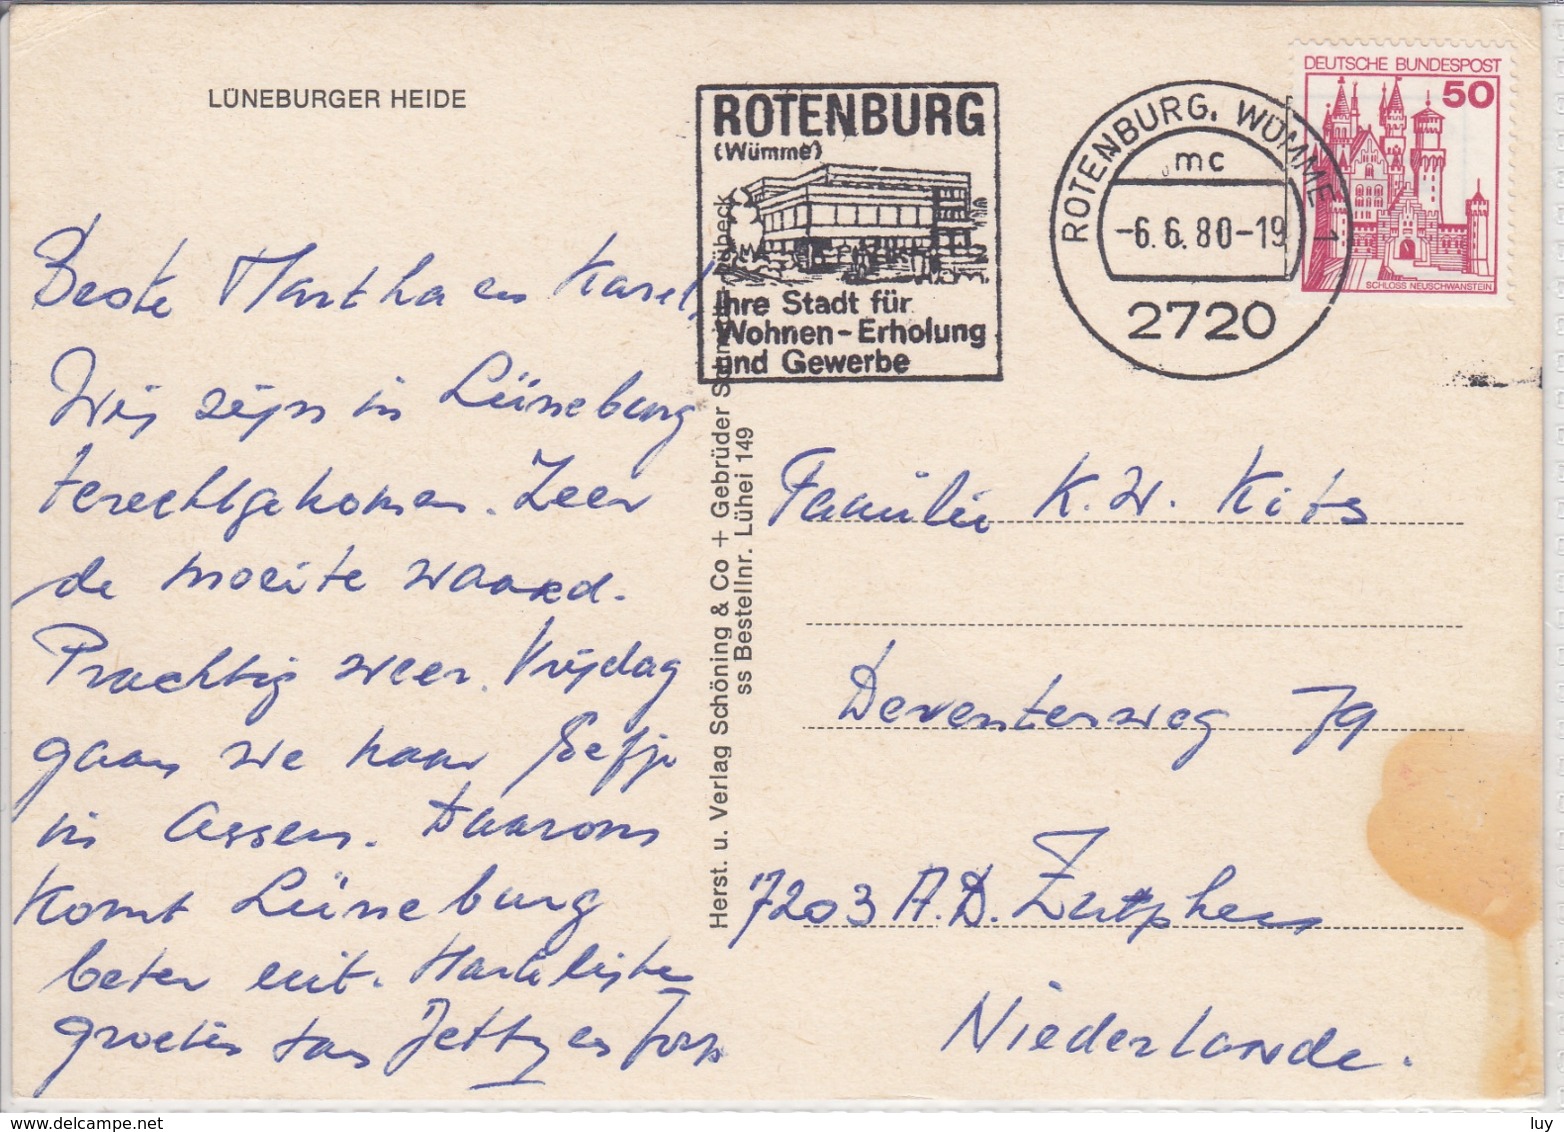 LÜNEBURGER HEIDE
Beste Martha en Karel,
Wij zijn in Lüneburg
terechtgekomen. Zeer
de moeite waard.
Prachtig weer. Vrijdag
gaan we naar Eefje
in Assen. Daarom
komt Lüneburg
beter uit. Hartelijke
groeten van Jetty en
Herst. u. Verlag Schöning & Co + Gebrüder Lübeck
ss Bestellnr. Lühei 149
ROTENBURG
(Wümme)
Ihre Stadt für
Wohnen-Erholung
und Gewerbe
ROTENBURG, WÜMME 1
mc
-6.6.80-19
2720
DEUTSCHE BUNDESPOST
50
SCHLOSS NEUSCHWANSTEIN
Familie K.W. Kits
Deventerweg 79
7203 A.D. Zutphen
Niederlande.
www.delcampe.net
luy